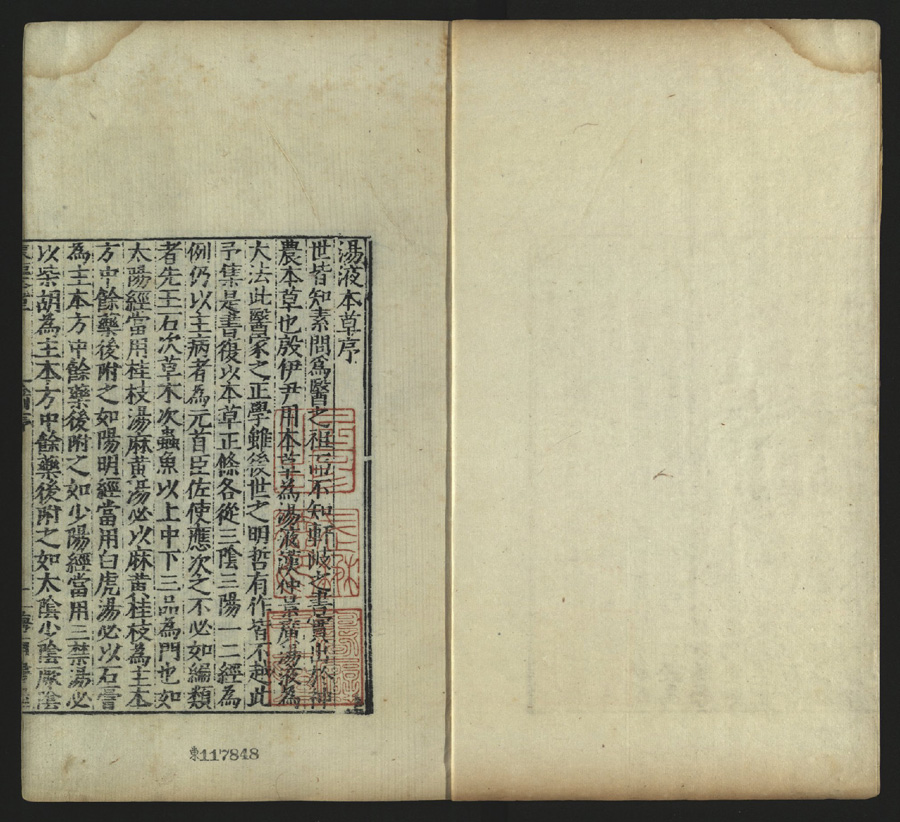 湯液本草序
世皆知素問爲醫之祖而不知軒岐之書實出於神
農本草也殷伊尹用本草為湯液漢仲景廣湯液為
大法此醫家之正學雖後世之明哲有作皆不越此
予集是書復以本草正條各從三陰三陽一二經為
例仍以主病者為元首臣佐使應次之不必如編類
者先玉石次草木次蟲魚以上中下三品為門也如
太陽經當用桂枝湯麻黃湯必以麻黃桂枝為主本
方中餘藥後附之如陽明經當用白虎湯必以石膏
為主本方中餘藥後附之如少陽經當用三禁湯必
以柴胡為主本方中餘藥後附之如太陰少陰厥陰
東117848